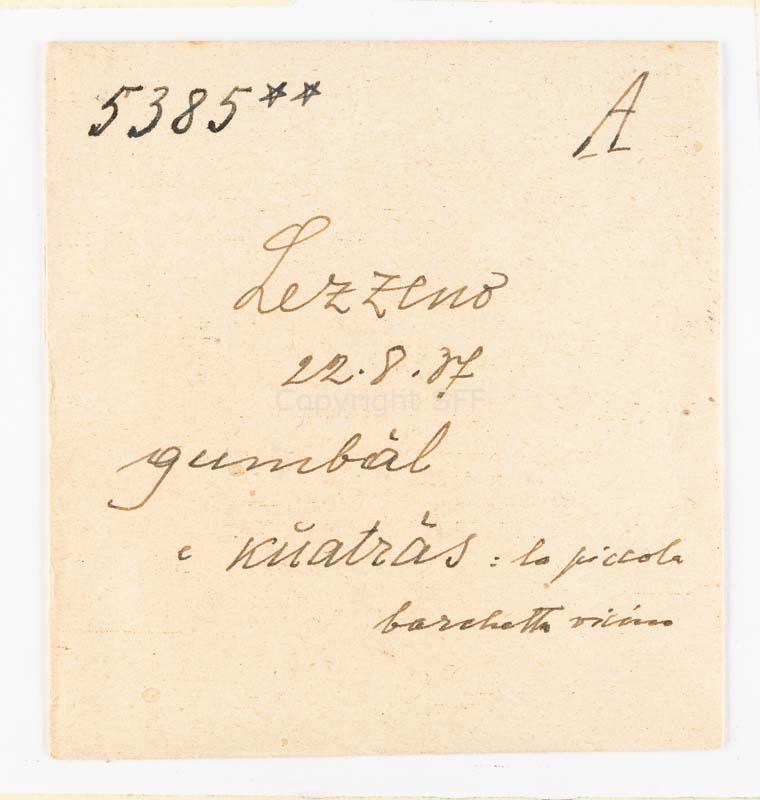 5385** A
Lezzeno
22.8.37
Copyright SFF
gumbàl
e kŭatràs : la piccola
barchetta vicino